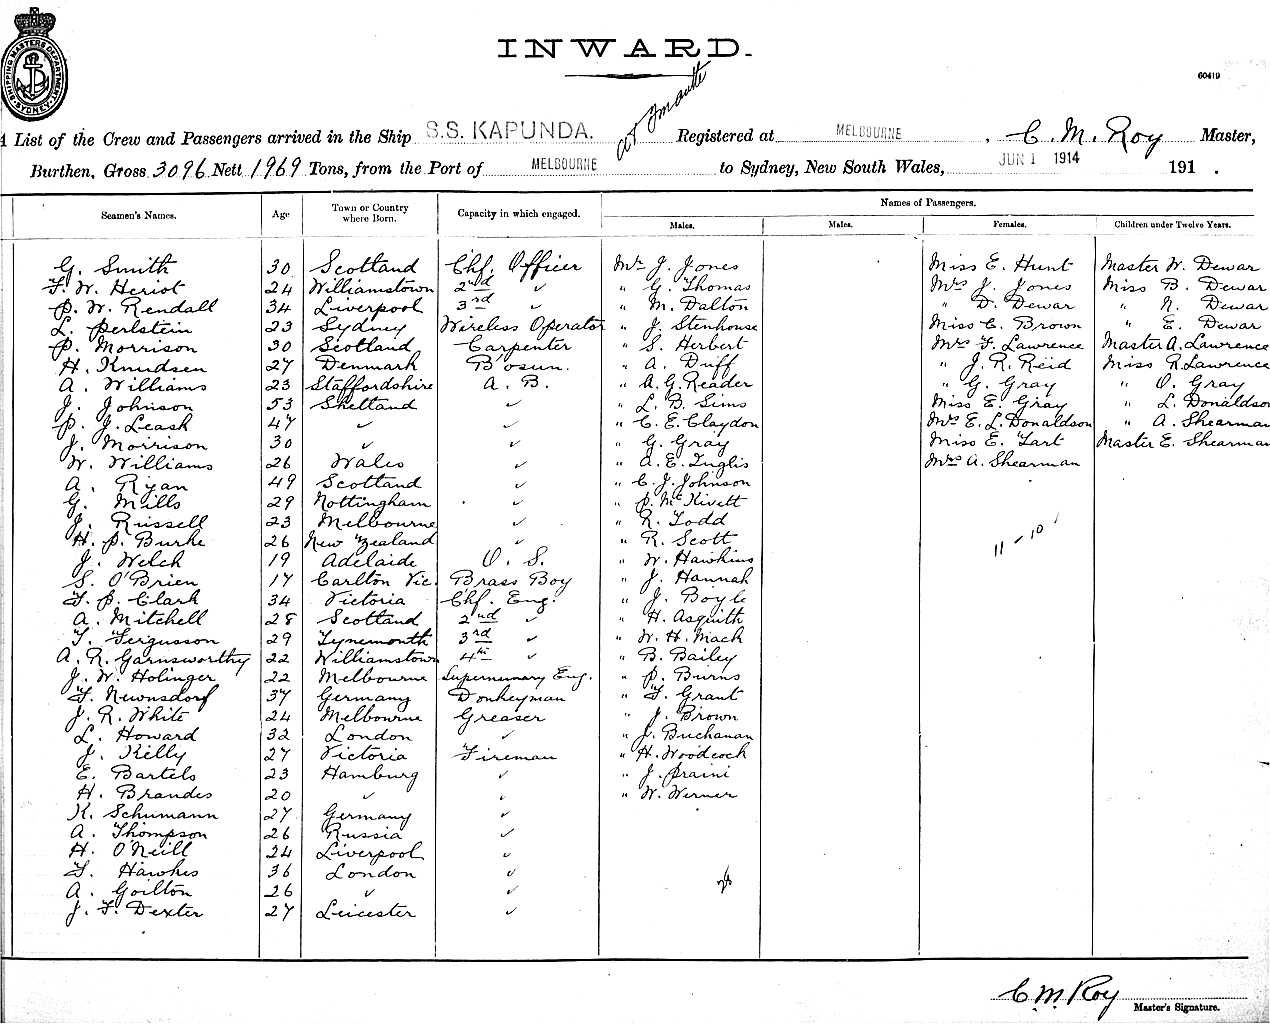 SHIPPING MASTERS DEPARTMENT SYDNEY
INWARD.
60419
A List of the Crew and Passengers arrived in the Ship S.S. KAPUNDA. Registered at MELBOURNE, C. M. Roy Master,
Burthen, Gross 3096 Nett 1969 Tons, from the Port of MELBOURNE to Sydney, New South Wales, JUN 1 1914 191 .
Names of Passengers.
Seamen's Names. Age Town or Country where Born. Capacity in which engaged. Males. Males. Females. Children under Twelve Years.
G. Smith 30 Scotland Chf. Officer Mr J. Jones Miss E. Hunt Master W. Dewar
F. W. Heriot 24 Williamstown 2nd ✓ " G. Thomas Mrs J. Jones Miss B. Dewar
P. W. Rendall 34 Liverpool 3rd ✓ " M. Dalton " D. Dewar " N. Dewar
L. Perlstein 23 Sydney Wireless Operator " J. Stenhouse Miss C. Brown " E. Dewar
P. Morrison 30 Scotland Carpenter " S. Herbert Mrs F. Lawrence Master A. Lawrence
H. Knudsen 27 Denmark B'osun. " A. Duff " J. R. Reid Miss R. Lawrence
A. Williams 23 Staffordshire A. B. " A. G. Reader " G. Gray " O. Gray
J. Johnson 53 Shetland ✓ " L. B. Sims Miss E. Gray " L. Donaldson
P. J. Leask 47 ✓ ✓ " C. E. Claydon Mrs E. L. Donaldson " A. Shearman
J. Morrison 30 ✓ ✓ " G. Gray Miss E. Tart Master E. Shearman
W. Williams 26 Wales ✓ " A. E. Inglis Mrs A. Shearman
A. Ryan 49 Scotland ✓ " C. J. Johnson
G. Mills 29 Nottingham ✓ " P. McKivett
J. Russell 23 Melbourne ✓ " R. Todd
H. P. Burke 26 New Zealand ✓ " R. Scott 11 - 10
J. Welch 19 Adelaide O. S. " W. Hawkins
S. O'Brien 17 Carlton Vic. Brass Boy " J. Hannah
F. P. Clark 34 Victoria Chf. Eng. " J. Boyle
A. Mitchell 28 Scotland 2nd ✓ " H. Asquith
T. Fergusson 29 Tynemouth 3rd ✓ " W. H. Mack
A. R. Garnsworthy 22 Williamstown 4th ✓ " B. Bailey
J. W. Holinger 22 Melbourne Supernumary Eng. " P. Burns
F. Newnsdorf 37 Germany Donkeyman " F. Grant
J. R. White 24 Melbourne Greaser " J. Brown
L. Howard 32 London ✓ " J. Buchanan
J. Kelly 27 Victoria Fireman " H. Woodcock
E. Bartels 23 Hamburg ✓ " J. Praini
H. Brandes 20 ✓ ✓ " W. Werner
K. Schumann 27 Germany ✓
A. Thompson 26 Russia ✓
H. O'Neill 24 Liverpool ✓
F. Hawkes 36 London ✓
A. Goilton 26 ✓ ✓
J. F. Dexter 27 Leicester ✓
C. M. Roy
Master's Signature.